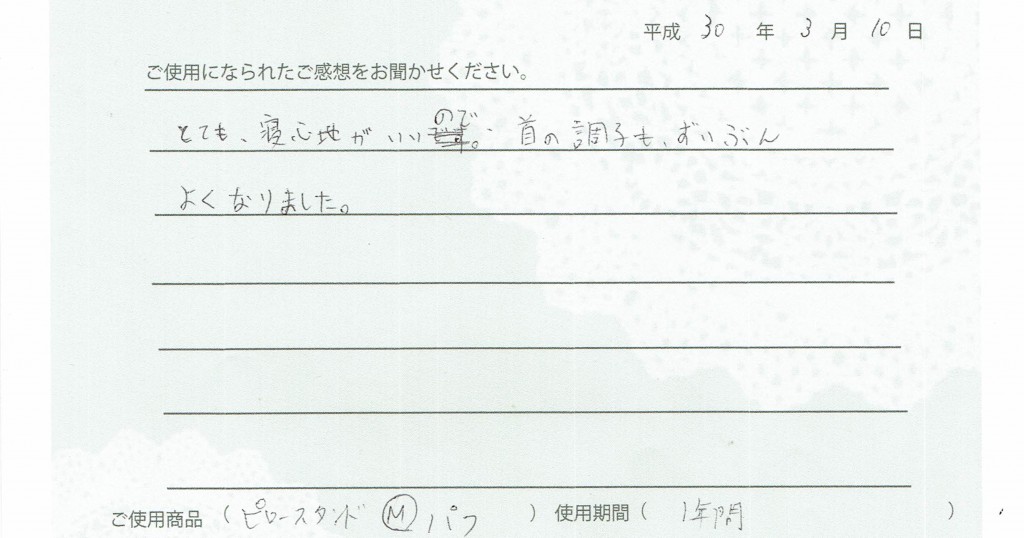 平成 30 年 3 月 10 日
ご使用になられたご感想をお聞かせください。
とても、寝心地がいいので 首の調子も、ずいぶん
よくなりました。
ご使用商品 ( ピロースタンド Ⓜ パフ ) 使用期間 ( 1年間 )